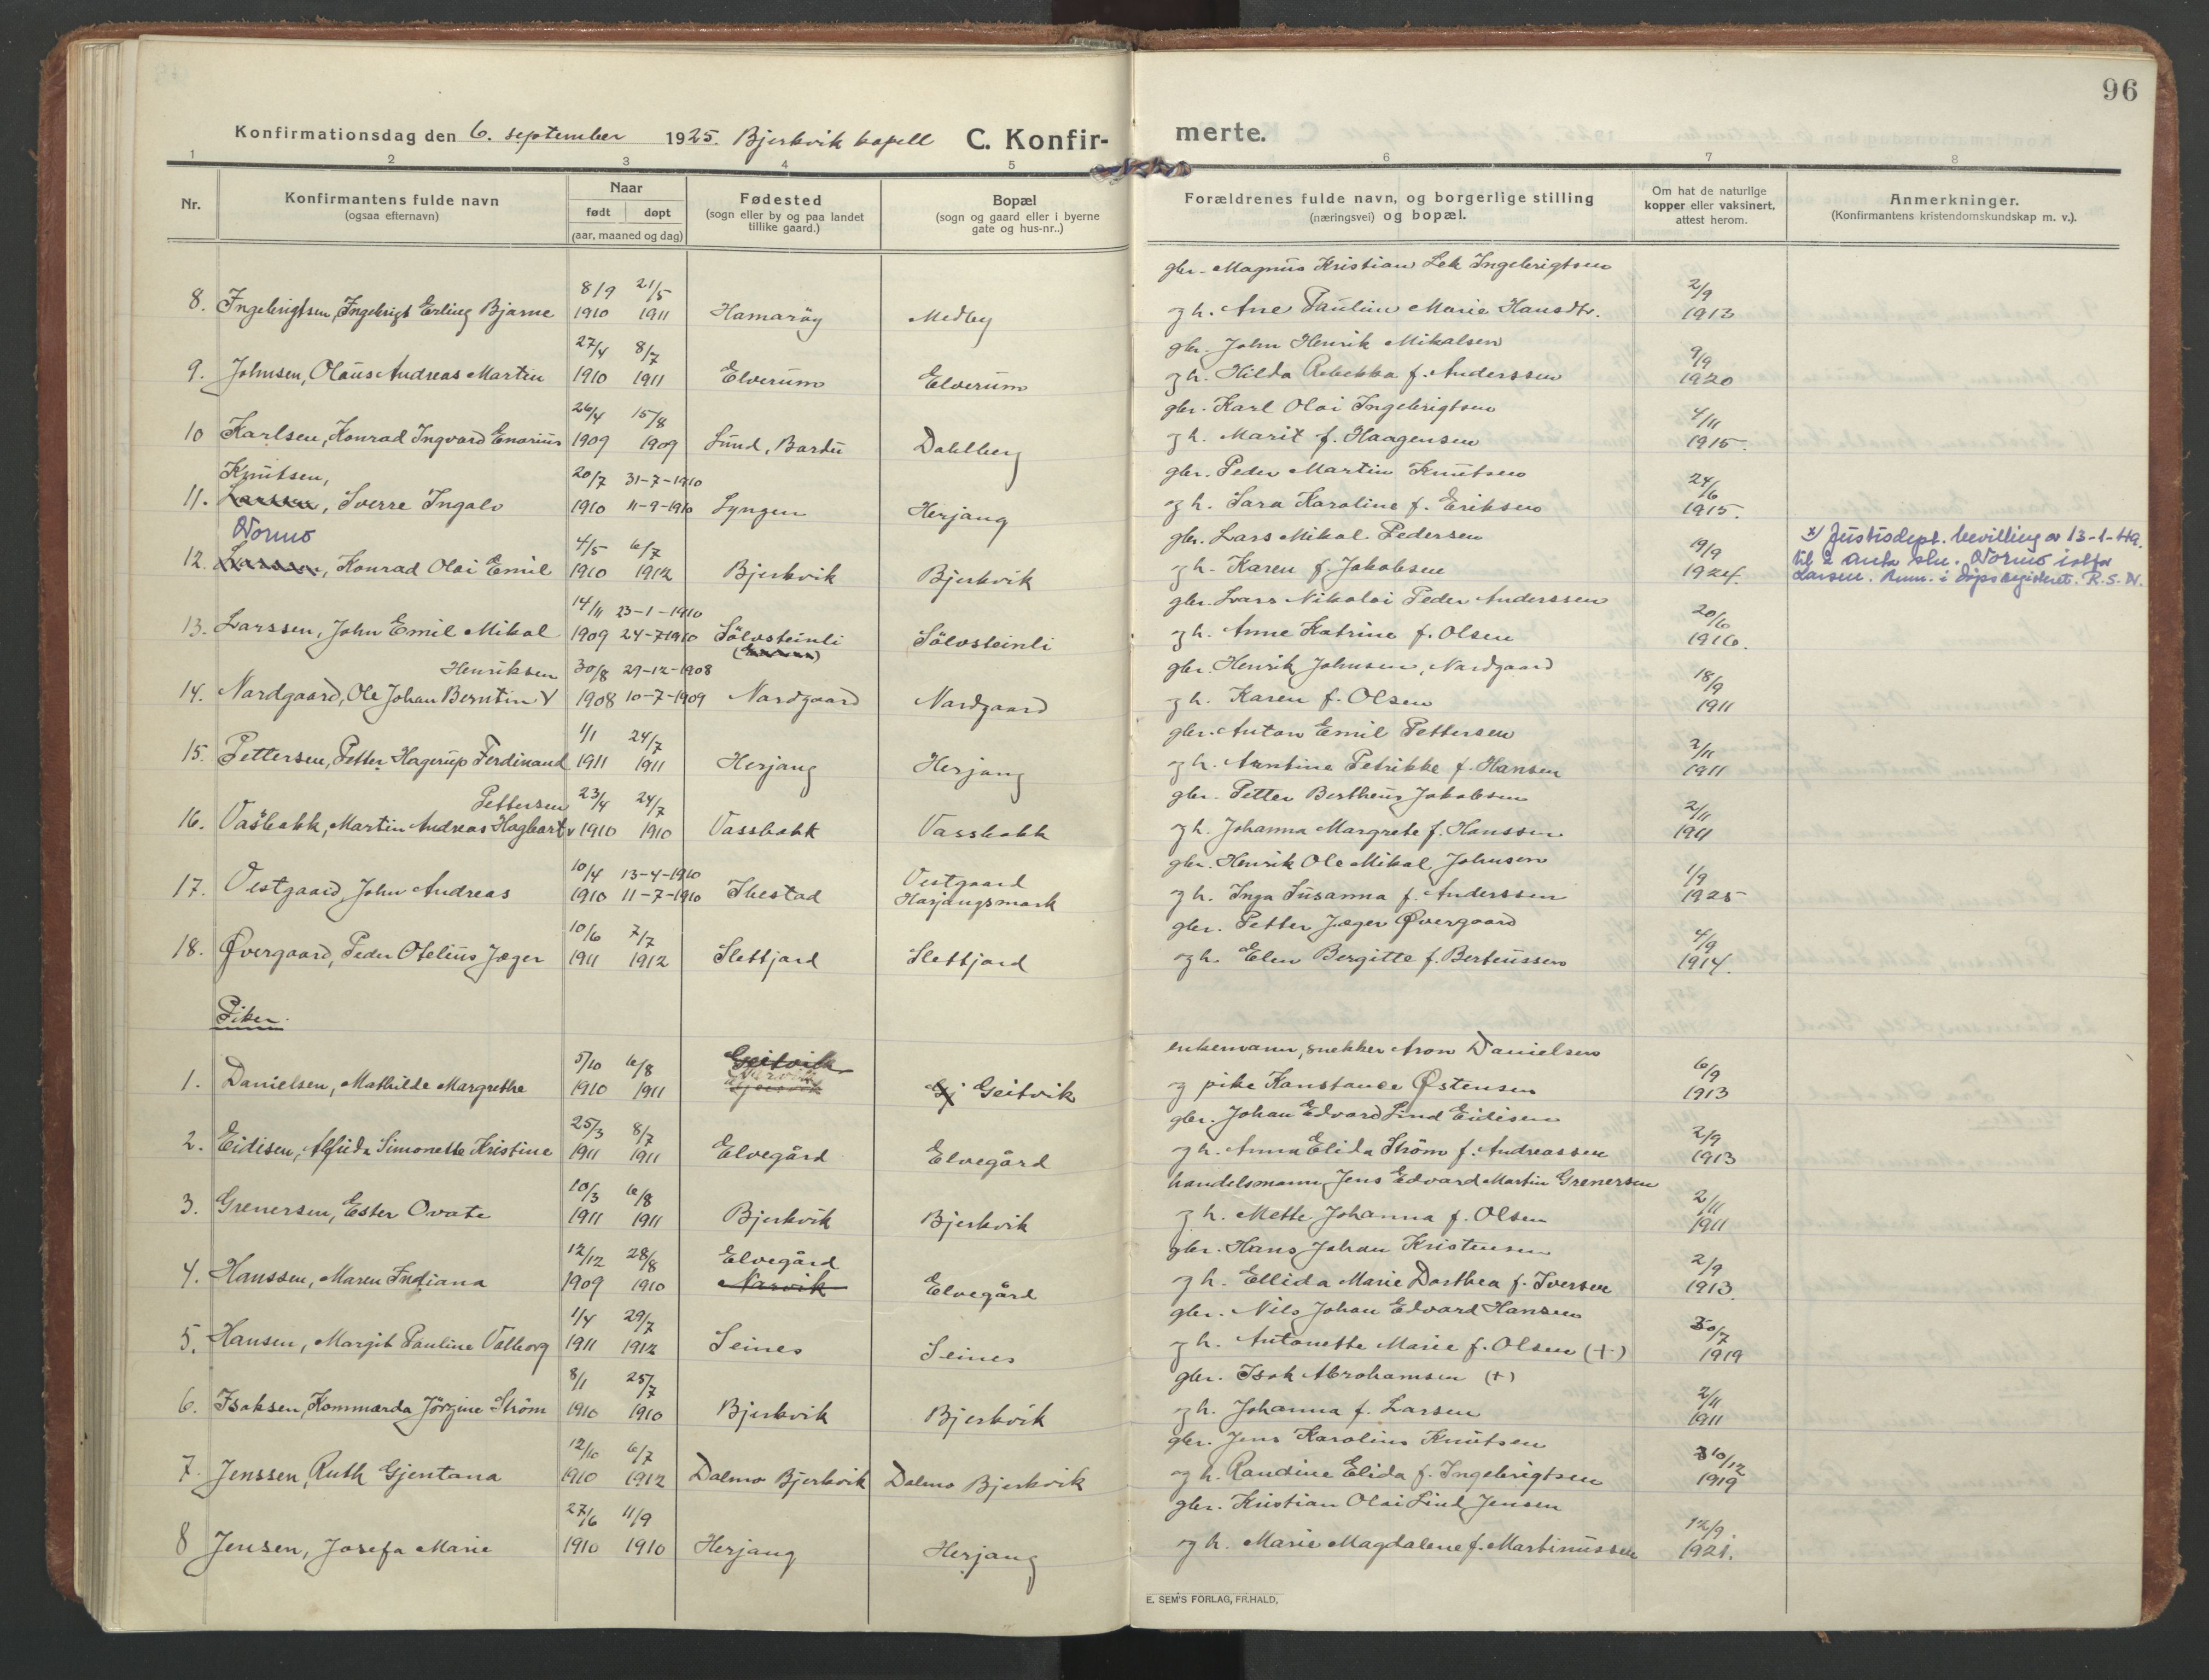 96
Konfirmationsdag den 6. september 1925. Bjerkvik kapell C. Konfir- merte.
1 2 3 4 5 6 7 8
Nr.
Konfirmantens fulde navn
(ogsaa efternavn)
Naar
født døpt
(aar, maaned og dag)
Fødested
(sogn eller by og paa landet
tillike gaard.)
Bopæl
(sogn og gaard eller i byerne
gate og hus-nr..)
Forældrenes fulde navn, og borgerlige stilling
(næringsvei) og bopæl.
Om hat de naturlige
kopper eller vaksinert,
attest herom.
Anmerkninger.
(Konfirmantens kristendomskundskap m. v.).
8/9 21/5 gbr. Magnus Kristian Lek Ingebrigtsen 2/9
8. Ingebrigtsen, Ingebrigt Erling Bjarne 1910 1911 Hamarøy Medby og h. Ane Pauline Marie Hansdtr. 1913
27/4 8/7 gbr. John Henrik Mikalsen 9/9
9. Johnsen, Olaus Andreas Martin 1910 1911 Elverum Elverum og h. Hilda Rebekka f. Anderssen 1920
26/4 15/8 gbr. Karl Oloi Ingebrigtsen 4/11
10 Karlsen, Konrad Ingvard Enarius 1909 1909 Lund, Bardu Dahlberg og h. Marit f. Haagensen 1915.
Knutsen, 20/7 31-7-1910 gbr. Peder Martin Knutsen 24/6
11. Larssen, Sverre Ingolv 1910 11-9-1910 Lyngen Herjang og h. Sara Karoline f. Eriksen 1915.
Normo 4/5 6/7 gbr. Lars Mikal Pedersen 19/9 x) Justisdept. bevilling av 13-1-49.
12. Larssen, Konrad Oloi Emil 1910 1912 Bjerkvik Bjerkvik og h. Karen f. Jakobsen 1924. til å anta sln. Normo istfor
Larsen. Anm. i døpsregisteret. R.S.N.
14/11 23-1-1910 gbr. Lars Nikolai Peder Anderssen 20/6
13. Larssen, John Emil Mikal 1909 24-7-1910 Sölvsteinli Sölvsteinli og h. Anne Katrine f. Olsen 1916.
Henriksen 30/8 29-12-1908 gbr. Henrik Johnsen, Nardgaard 18/9
14. Nardgaard, Ole Johan Berntin V 1908 10-7-1909 Nardgaard Nardgaard og h. Karen f. Olsen 1911
1/1 24/7 gbr. Anton Emil Pettersen 2/11
15. Pettersen, Petter Hagerup Ferdinand 1911 1911 Herjang Herjang og h. Arntine Petrikke f. Hansen 1911
Pettersen 23/4 24/7 gbr. Petter Bertheus Jakobsen 2/11
16. Vasbakk, Martin Andreas Hagbart v 1910 1910 Vassbakk Vassbakk og h. Johanna Margrete f. Hanssen 1911
10/4 13-4-1910 Vestgaard gbr. Henrik Ole Mikal Johnsen 1/9
17. Vestgaard, John Andreas 1910 11-7-1910 Ibestad Harjangsmark og h. Inga Susanna f. Anderssen 1925
10/6 7/7 gbr. Petter Jæger Øvergaard 4/9
18. Øvergaard, Peder Otelius Jæger 1911 1912 Slettjord Slettjord og h. Elen Bergitte f. Berteussen 1914.
Piker.
5/10 6/8 Geitvik enkemann, snekker Aron Danielsen 6/9
1. Danielsen, Mathilde Margrethe 1910 1911 Geitvik og pike Konstance Østensen 1913
25/3 8/7 gbr. Johan Edvard Lind Eidisen 2/9
2. Eidisen, Alfrida Simonette Kristine 1911 1911 Elvegård Elvegård og h. Anna Elida Strøm f. Andreassen 1913
10/3 6/8 handelsmann Jens Edvard Martin Grenersen 2/11
3. Grenersen, Ester Ovate 1911 1911 Bjerkvik Bjerkvik og h. Mette Johanna f. Olsen 1911
12/12 28/8 Elvegård gbr. Hans Johan Kristensen 2/9
4. Hanssen, Maren Indiana 1909 1910 Narvik Elvegård og h. Ellida Marie Dorthea f. Iversen 1913.
1/4 29/7 gbr. Nils Johan Edvard Hansen 30/7
5. Hansen, Margit Pauline Valborg 1911 1912 Seines Seines og h. Antonette Marie f. Olsen (+) 1919
8/1 25/7 gbr. Isak Abrahamsen (+) 2/11
6. Isaksen, Kommarda Jörgine Ström 1910 1910 Bjerkvik Bjerkvik og h. Johanna f. Larsen 1911
12/10 6/7 gbr. Jens Karolius Knutsen 30/12
7. Jenssen, Ruth Gjentana 1910 1912 Dalmo Bjerkvik Dalmo Bjerkvik og h. Randine Elida f. Ingebrigtsen 1919
27/6 11/9 gbr. Kristian Oloi Lind Jensen 12/9.
8 Jensen, Josefa Marie 1910 1910 Herjang Herjang og h. Marie Magdalene f. Martinussen 1921.
E. SEM'S FORLAG, FR.HALD,